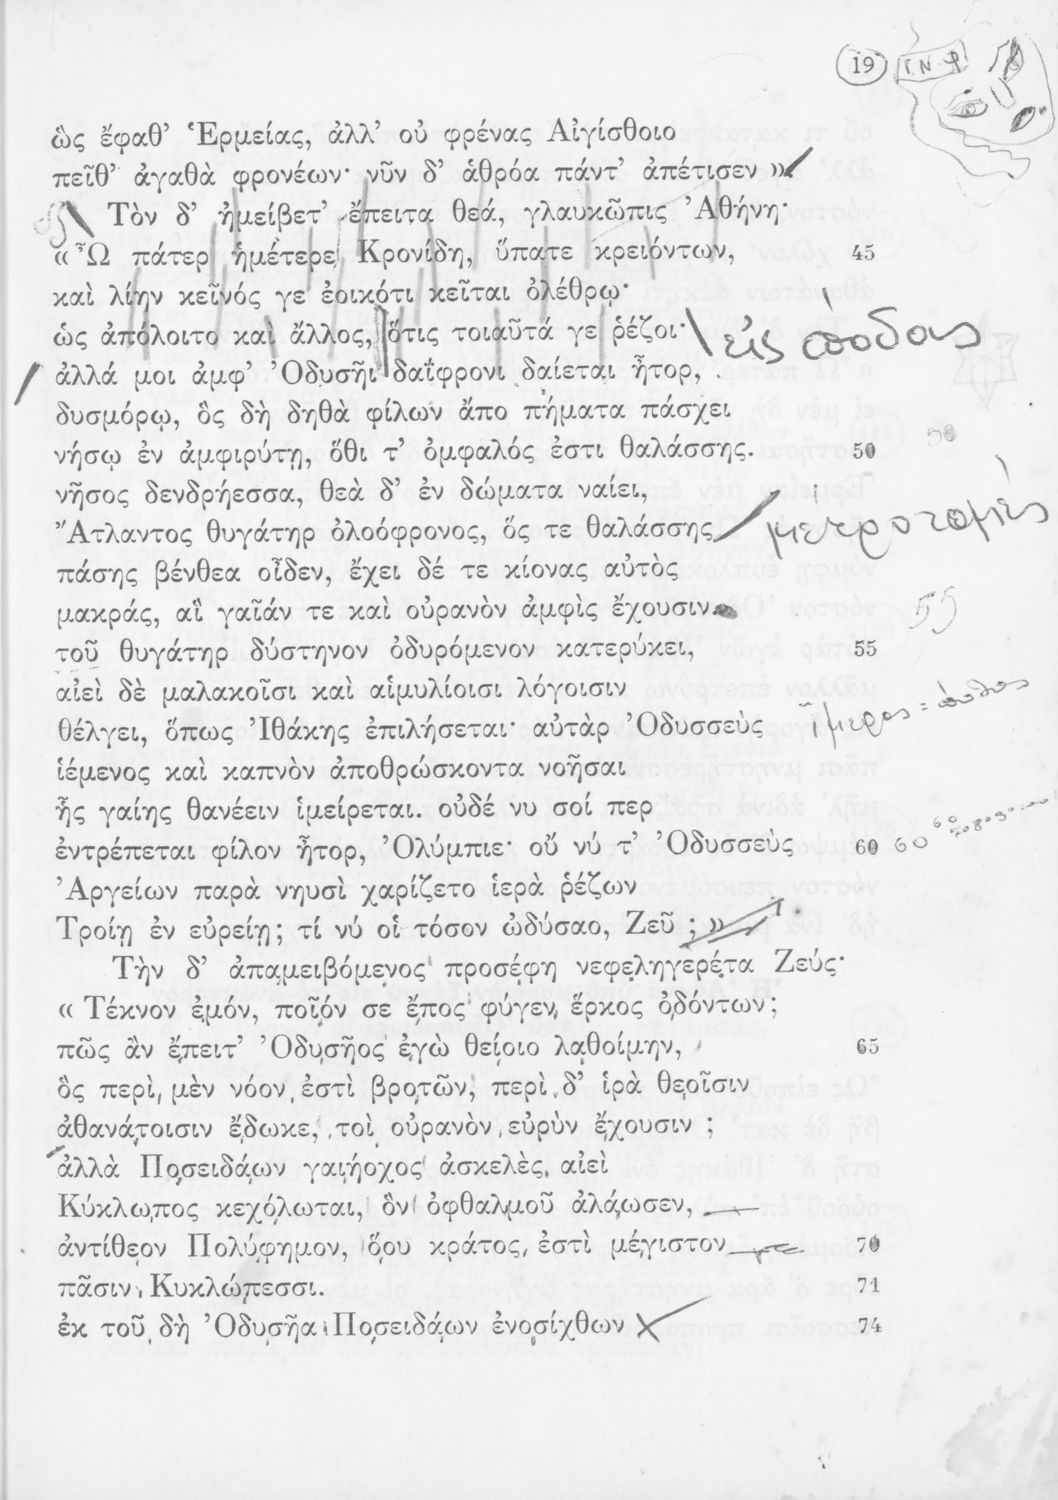 19 Γ.Ν.Φ
ὣς ἔφαθ’ Ἑρμείας, ἀλλ’ οὐ φρένας Αἰγίσθοιο
πεῖθ’ ἀγαθὰ φρονέων· νῦν δ’ ἁθρόα πάντ’ ἀπέτισεν »
Τὸν δ’ ἠμείβετ’ ἔπειτα θεά, γλαυκῶπις ’Αθήνη·
« Ὦ πάτερ ἡμέτερε Κρονίδη, ὕπατε κρειόντων, 45
καὶ λίην κεῖνός γε ἐοικότι κεῖται ὀλέθρῳ·
ὡς ἀπόλοιτο καὶ ἄλλος, ὅτις τοιαῦτά γε ῥέζοι· εἰς πόδας
ἀλλά μοι ἀμφ’ ’Οδυσῆι δαΐφρονι δαίεται ἦτορ,
δυσμόρῳ, ὃς δὴ δηθὰ φίλων ἄπο πήματα πάσχει
νήσῳ ἐν ἀμφιρύτῃ, ὅθι τ’ ὀμφαλός ἐστι θαλάσσης. 50 50
νῆσος δενδρήεσσα, θεὰ δ’ ἐν δώματα ναίει,
Ἄτλαντος θυγάτηρ ὀλοόφρονος, ὅς τε θαλάσσης
πάσης βένθεα οἶδεν, ἔχει δέ τε κίονας αὐτὸς
μακράς, αἳ γαῖάν τε καὶ οὐρανὸν ἀμφὶς ἔχουσιν. 55
τοῦ θυγάτηρ δύστηνον ὀδυρόμενον κατερύκει, 55
αἰεὶ δὲ μαλακοῖσι καὶ αἱμυλίοισι λόγοισιν
θέλγει, ὅπως ’Ιθάκης ἐπιλήσεται· αὐτὰρ ’Οδυσσεὺς ἵμερος = πόθος
ἱέμενος καὶ καπνὸν ἀποθρώσκοντα νοῆσαι
ἧς γαίης θανέειν ἱμείρεται. οὐδέ νυ σοί περ
ἐντρέπεται φίλον ἦτορ, ’Ολύμπιε· οὔ νύ τ’ ’Οδυσσεὺς 60 60
’Αργείων παρὰ νηυσὶ χαρίζετο ἱερὰ ῥέζων
Τροίῃ ἐν εὐρείῃ; τί νύ οἱ τόσον ὠδύσαο, Ζεῦ ; »
Τὴν δ’ ἀπαμειβόμενος προσέφη νεφεληγερέτα Ζεύς·
« Τέκνον ἐμόν, ποῖόν σε ἔπος φύγεν ἕρκος ὀδόντων;
πῶς ἂν ἔπειτ’ ’Οδυσῆος ἐγὼ θείοιο λαθοίμην, 65
ὃς περὶ μὲν νόον ἐστὶ βροτῶν, περὶ δ’ ἱρὰ θεοῖσιν
ἀθανάτοισιν ἔδωκε, τοὶ οὐρανὸν εὐρὺν ἔχουσιν ;
ἀλλὰ Ποσειδάων γαιήοχος ἀσκελὲς αἰεὶ
Κύκλωπος κεχόλωται, ὃν ὀφθαλμοῦ ἀλάωσεν,
ἀντίθεον Πολύφημον, ὅου κράτος ἐστὶ μέγιστον 70
πᾶσιν Κυκλώπεσσι. 71
ἐκ τοῦ δὴ ’Οδυσῆα Ποσειδάων ἐνοσίχθων 74